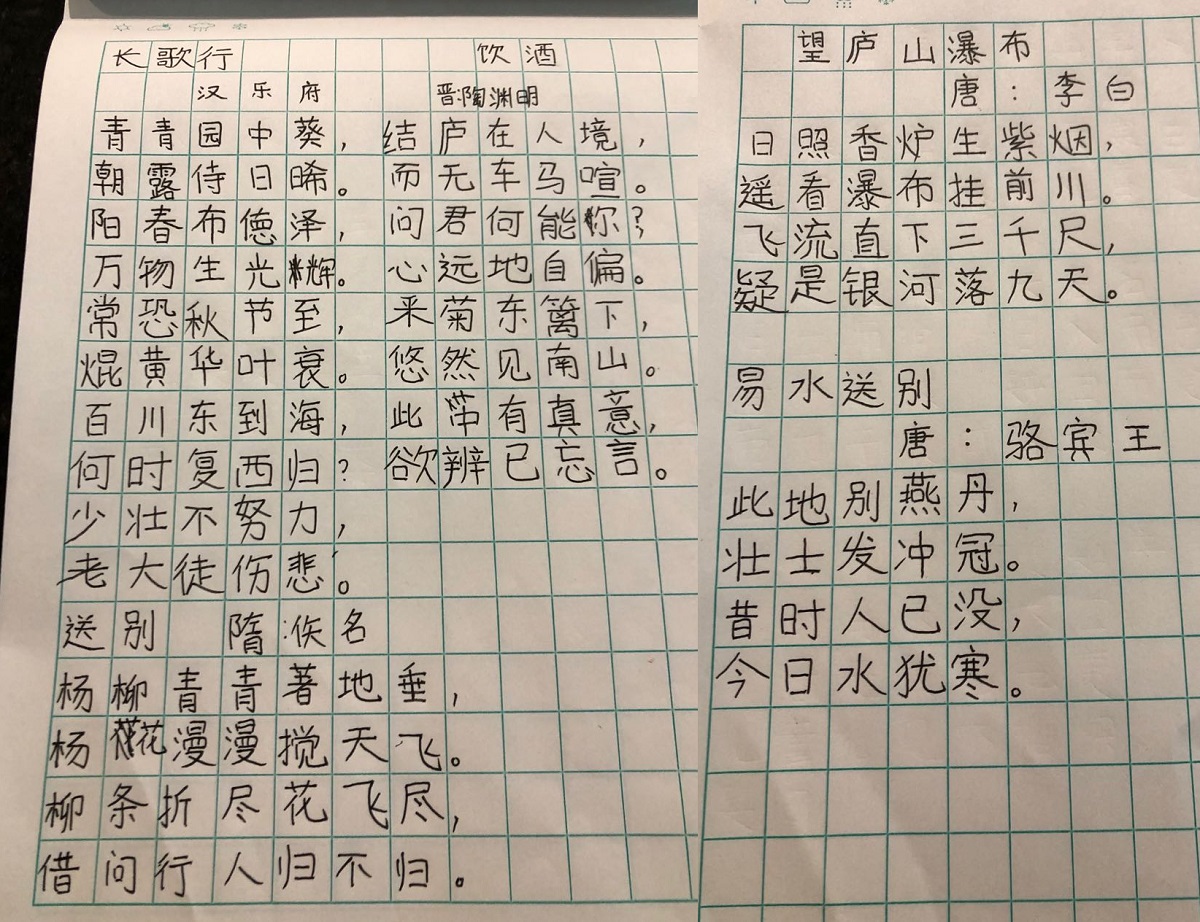 长歌行
汉乐府
青青园中葵，
朝露侍日晞。
阳春布德泽，
万物生光辉。
常恐秋节至，
焜黄华叶衰。
百川东到海，
何时复西归？
少壮不努力，
老大徒伤悲。
饮酒
晋:陶渊明
结庐在人境，
而无车马喧。
问君何能尔？
心远地自偏。
采菊东篱下，
悠然见南山。
此中有真意，
欲辨已忘言。
送别 隋:佚名
杨柳青青著地垂，
杨花漫漫搅天飞。
柳条折尽花飞尽，
借问行人归不归。
望庐山瀑布
唐：李白
日照香炉生紫烟，
遥看瀑布挂前川。
飞流直下三千尺，
疑是银河落九天。
易水送别
唐：骆宾王
此地别燕丹，
壮士发冲冠。
昔时人已没，
今日水犹寒。